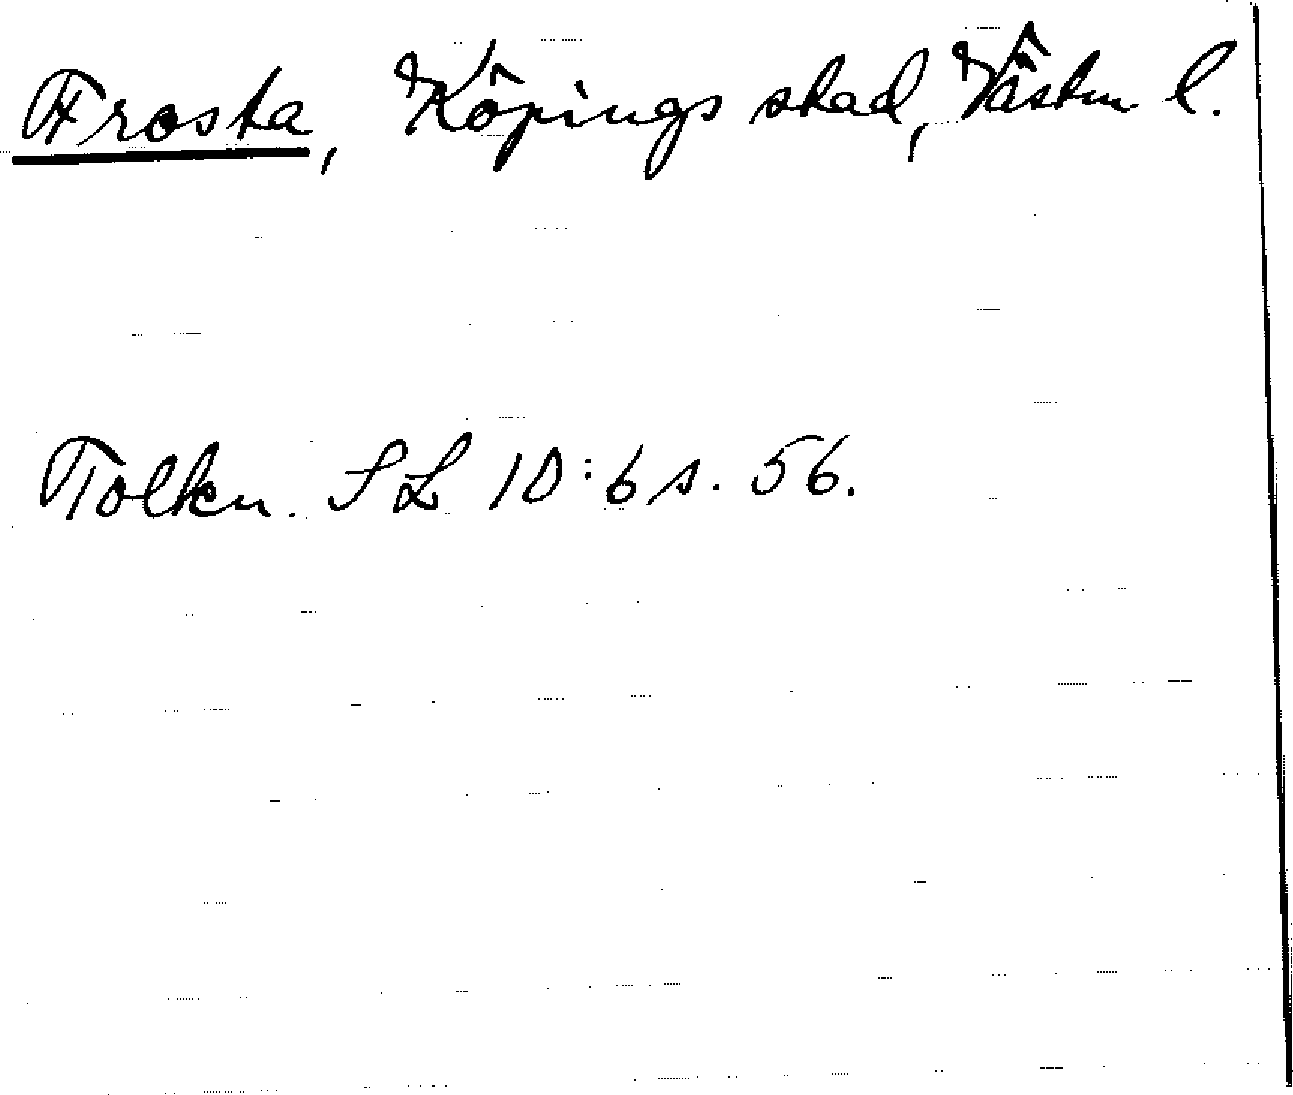 Frosta, Köpings stad, Västm l.
Tolkn. SL 10:6 s. 56.